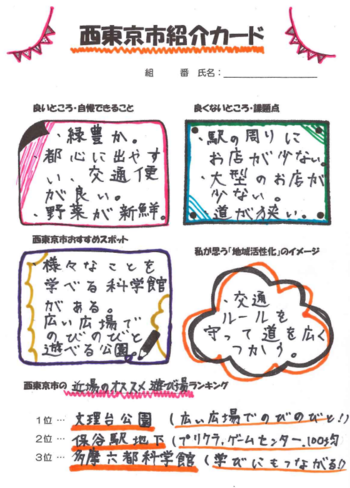 西東京市紹介カード
組 番 氏名:
良いところ・自慢できること
・緑豊か。
・都心に出やす
い、交通便
が良い。
・野菜が新鮮。
良くないところ・課題点
・駅の周りに
お店が少ない。
・大型のお店が
少ない。
・道が狭い。
西東京市おすすめスポット
・様々なことを
学べる科学館
がある。
・広い広場で
のびのびと
遊べる公園。
私が思う「地域活性化」のイメージ
・交通
ルールを
守って道を広く
つかう。
西東京市の 近場のオススメ遊び場ランキング
1位 … 文理台公園 (広い広場でのびのびと!)
2位 … 保谷駅地下 (プリクラ、ゲームセンター、100均)
3位 … 多摩六都科学館 (学びにもつながる!)